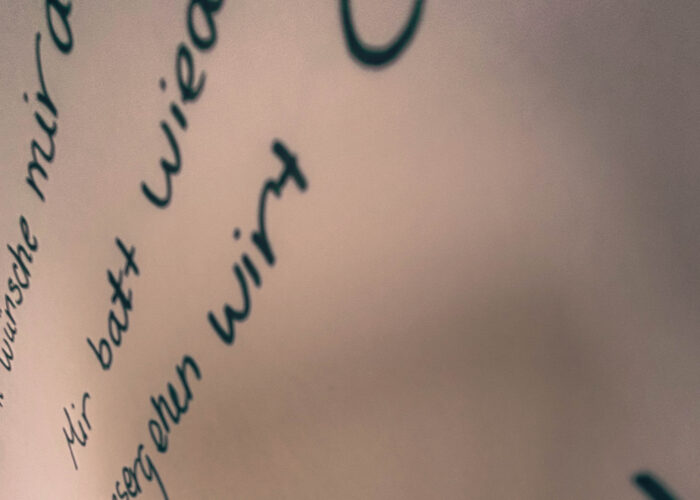 wünsche mir
Mir batt wied
sergehen wirt